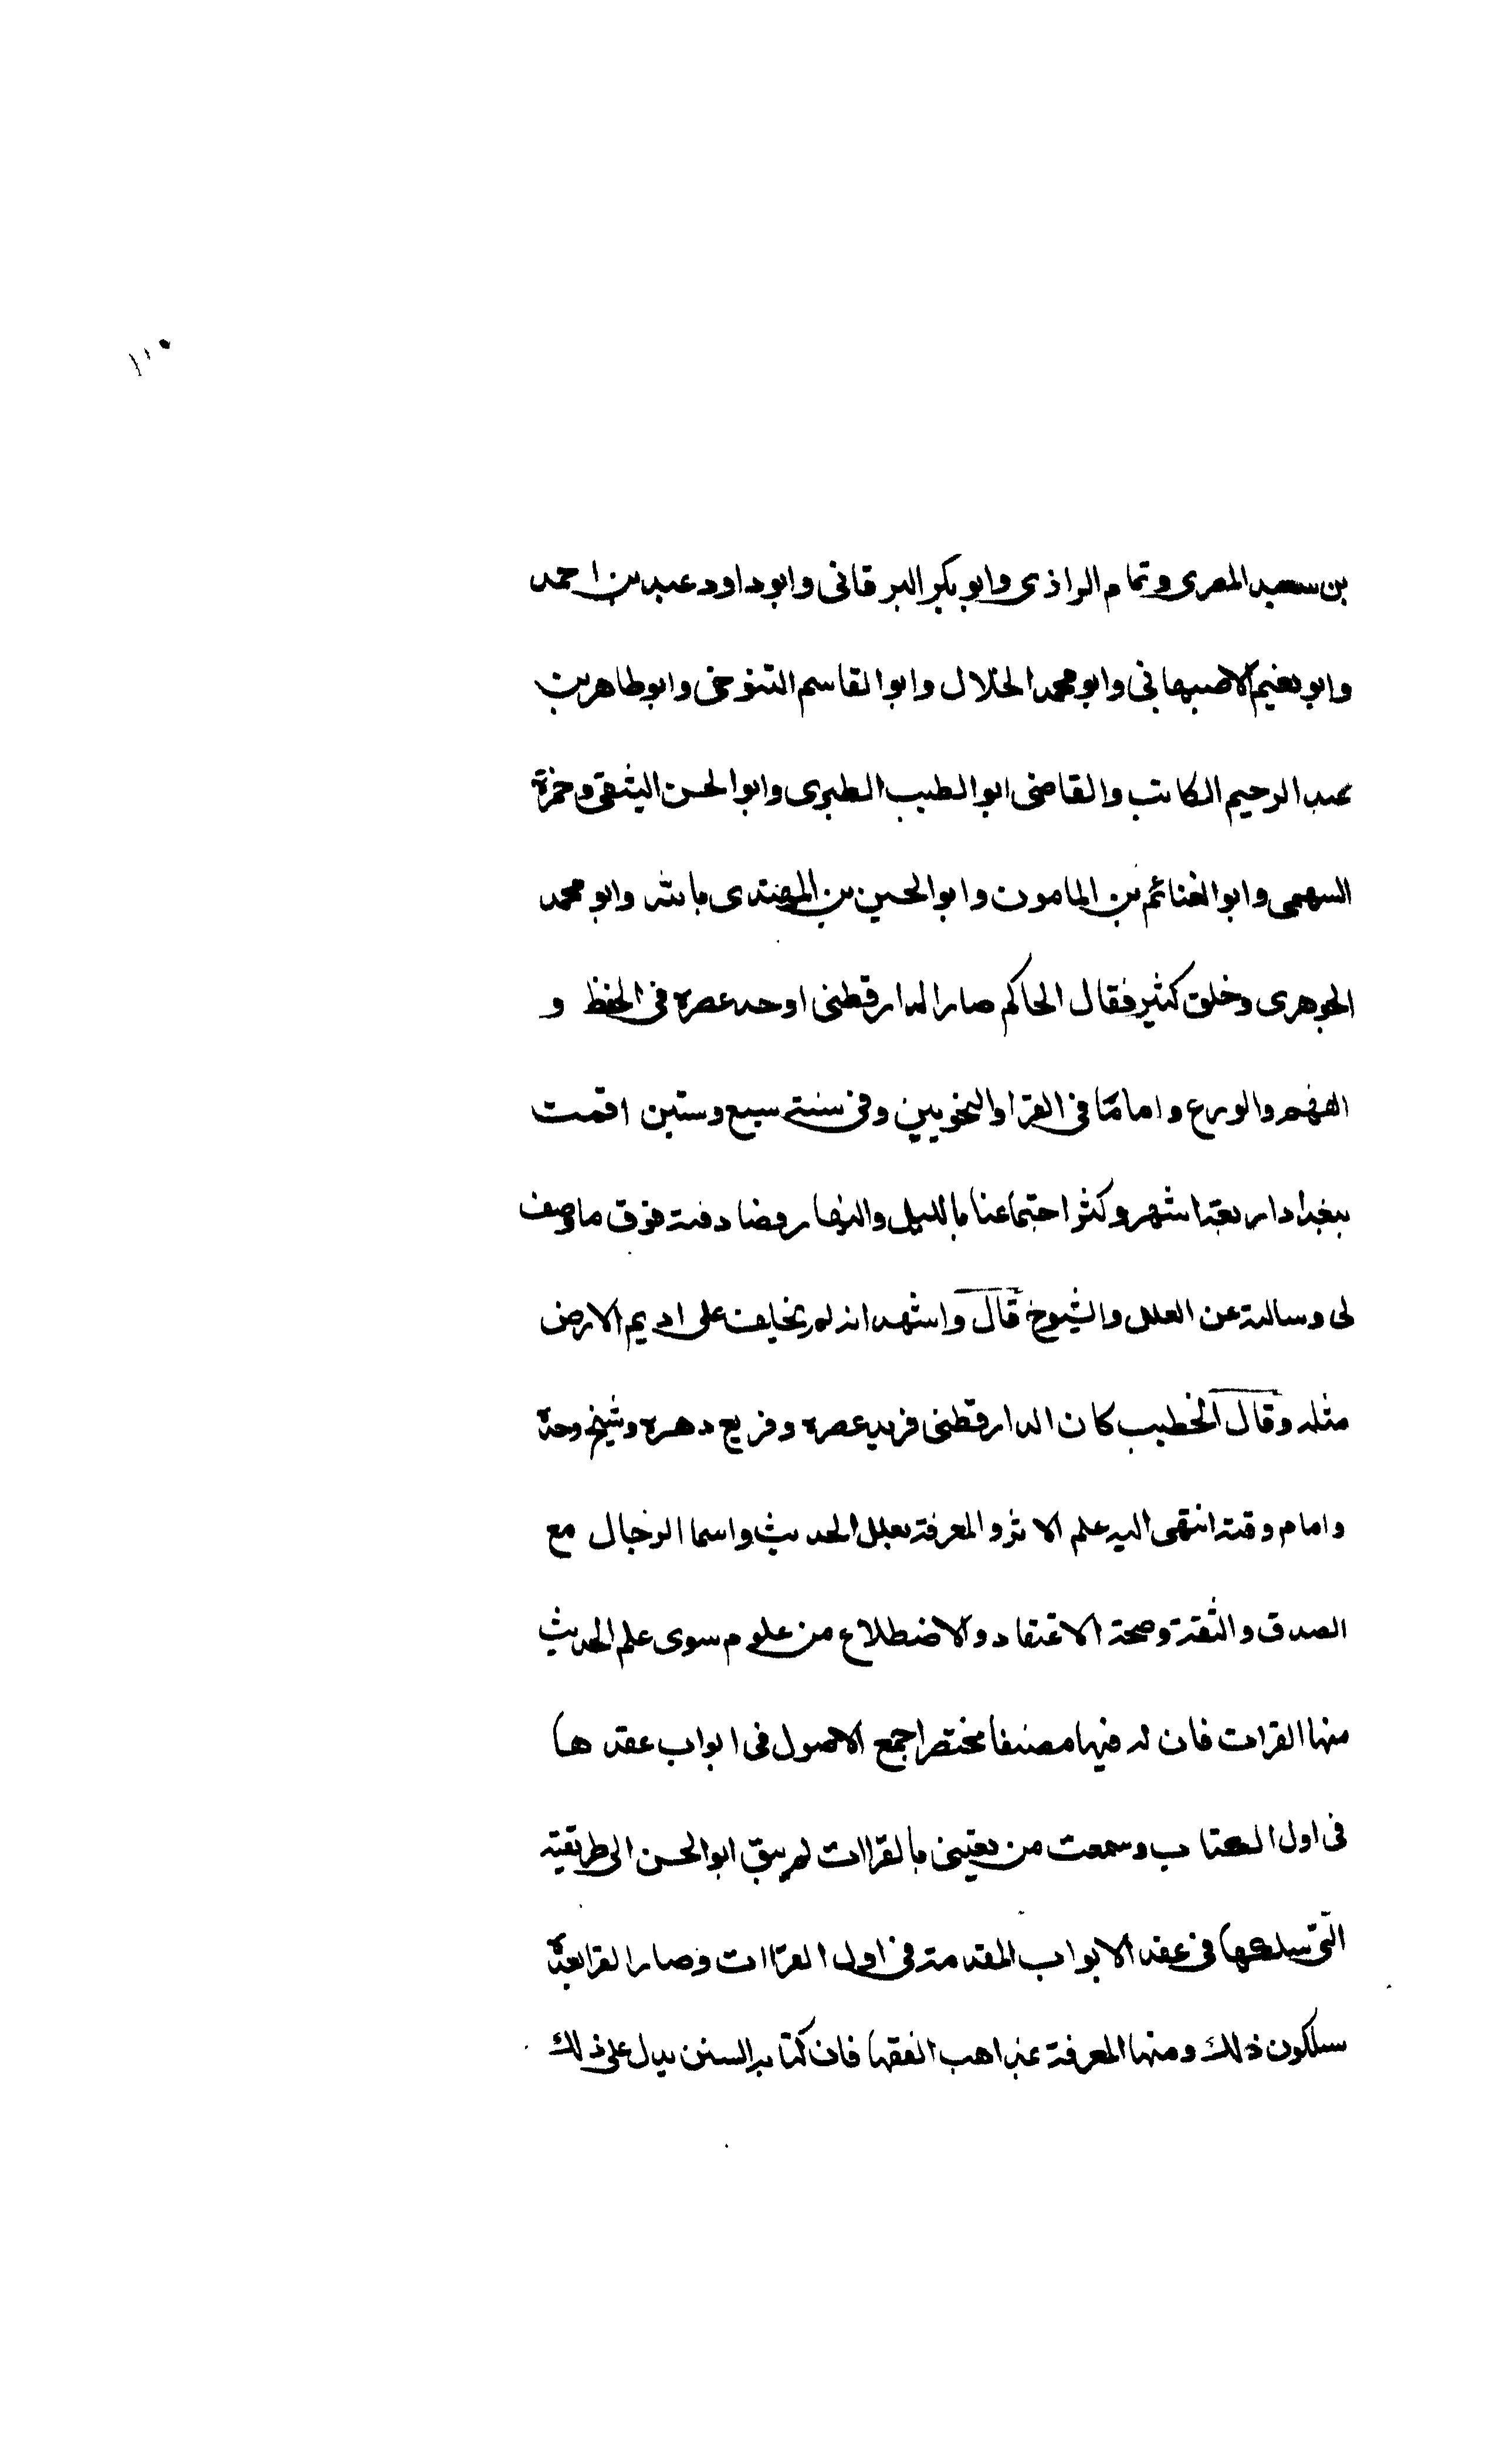 ١١٠
بن سعيد المصرى وتمام الراذى وابو بكر البرقانى وابو داود عبد بن احمد
وابو نعيم الاصبهانى وابو محمد الخلال وابو القاسم التنوخى وابو طاهر بن
عبد الرحيم الكاتب والقاضى ابو الطيب الطبرى وابو الحسن اليثقى وحمزة
السهمى وابو الغنائم بن المامون وابو الحسين بن المهتدى بالله وابو محمد
الجوهرى وخلق كثير فقال الحاكم صار الدارقطنى اوحد عصره فى الحفظ و
الفهم والورع واماما فى القرا والنخويين وفى سنة سبع وستين اقمت
ببغداد اربعة اشهر وكثر اجتماعنا بالليل والنهار فصادفته فوق ما وصف
لى وسالته عن العلل والشيوخ قال واشهد انه لم يخلف على اديم الارض
مثله وقال الخطيب كان الدارقطنى فريد عصره وفريع دهره وشيخ وحده
وامام وقته انتهى اليه علم الاثر والمعرفة بعلل الحديث واسما الرجال مع
الصدق والثقة وصحة الاعتقاد والاضطلاع من علوم سوى علم الحديث
منها القرات فان له فيها مصنفا مختصرا جمع الاصول فى ابواب عقدها
فى اول الكتاب وسمعت من يعتنى بالقراات لم يسبق ابو الحسن الى طريقته
التى سلكها فى عقد الابواب المقدمة فى اول القراات وصار القرا بعده
يسلكون ذلك ومنها المعرفة بمذاهب الفقها فان كتابه السنن يدل على ذلك